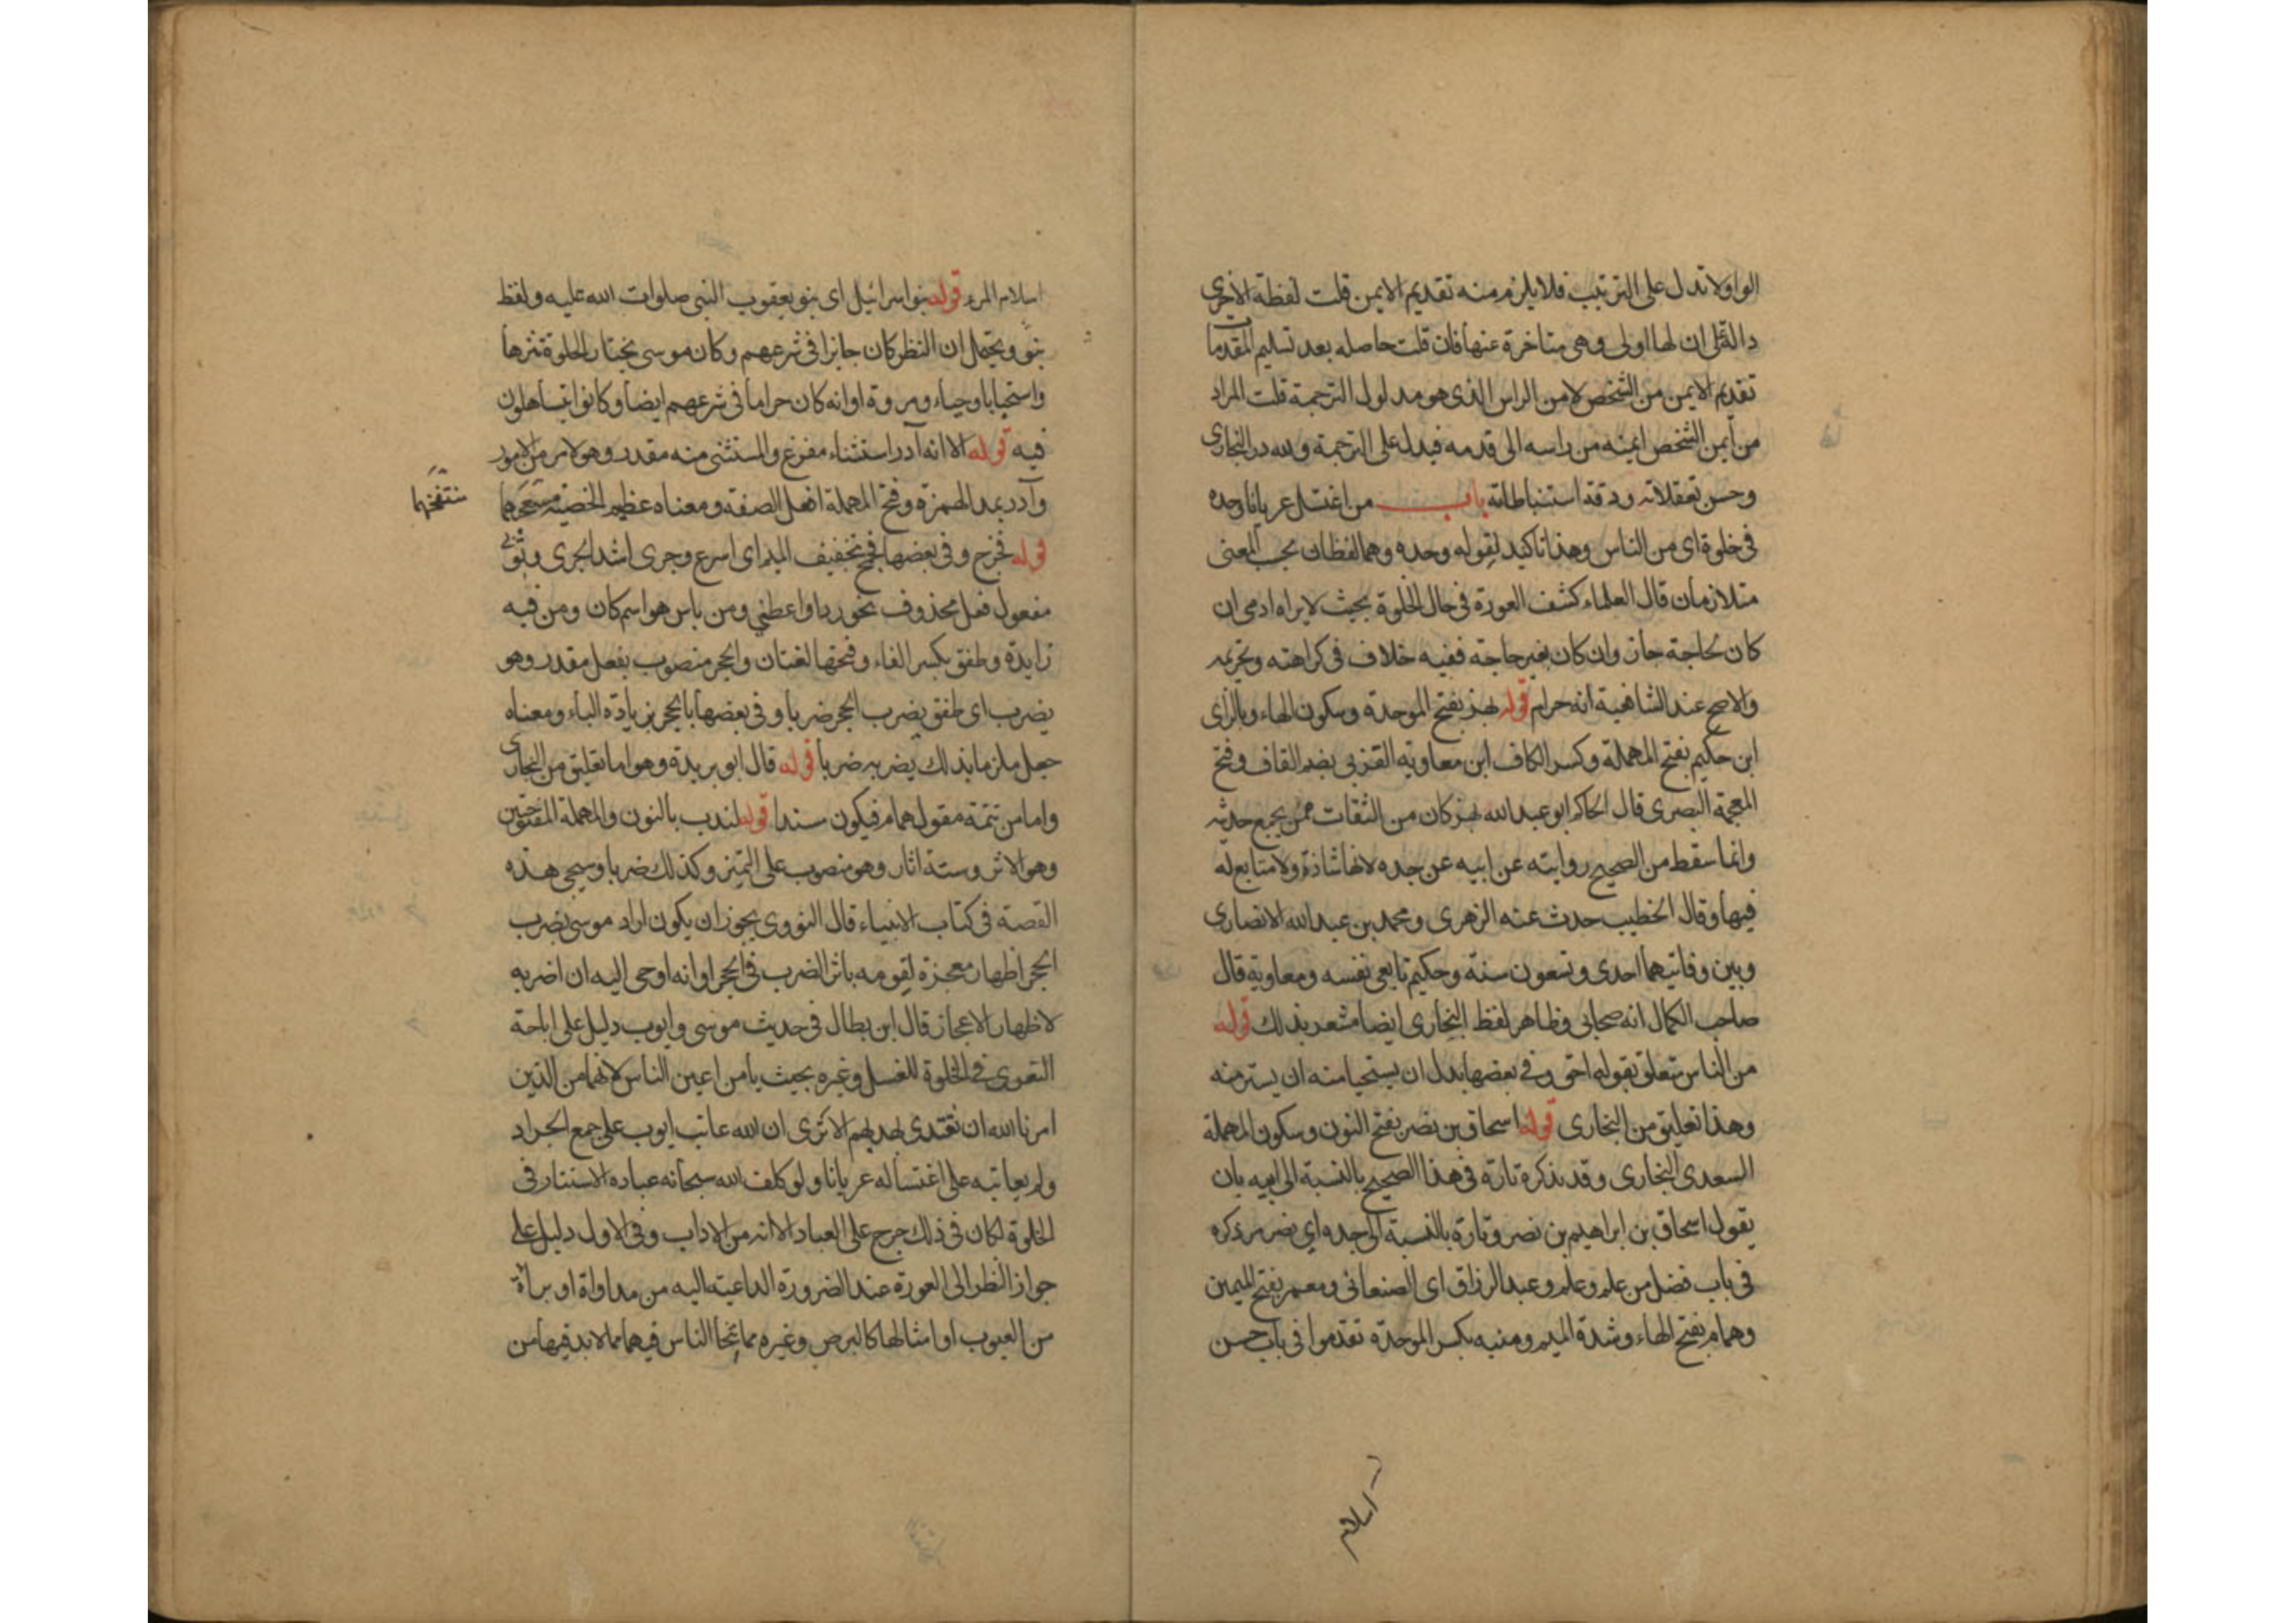 الواو لا تدل على الترتيب فلا يلزم منه تقديم الايمن قلت لفظة الاخرى
دالة على ان لها اولى وهى متاخرة عنها فان قلت حاصله بعد تسليم المقدمات
تقديم الايمن من الشخص لا من الراس الذى هو مدلول الترجمة قلت المراد
من أيمن الشخص ايمنه من راسه الى قدمه فيدل على الترجمة ولله در البخارى
وحسن تعقلاته ودقة استنباطاته باب من اغتسل عريانا وحده
فى خلوة اى من الناس وهذا تاكيد لقوله وحده وهما لفظان بحسب المعنى
متلازمان قال العلماء كشف العورة فى حال الخلوة بحيث لا يراه ادمى ان
كان لحاجة جاز وان كان بغير حاجة ففيه خلاف فى كراهته وتحريمه
والاصح عند الشافعية انه حرام قوله بهز بفتح الموحدة وسكون الهاء وبالزاى
ابن حكيم بفتح المهملة وكسر الكاف ابن معاوية القشيرى بضم القاف وفتح
المعجمة البصرى قال الحاكم ابو عبد الله بهز كان من الثقات ممن يجمع حديثه
وانما سقط من الصحيح روايته عن ابيه عن جده لانها شاذة ولا متابع له
فيها وقال الخطيب حدث عنه الزهرى ومحمد بن عبد الله الانصارى
وبين وفاتيهما احدى وتسعون سنة وحكيم تابعى نفسه ومعاوية قال
صاحب الكمال انه صحابى وظاهر لفظ البخارى ايضا مشعر بذلك قوله
من الناس متعلق بقوله احق وفى بعضها بدل ان يستحيا منه ان يستر منه
وهذا تعليق من البخارى قوله اسحاق بن نصر بفتح النون وسكون المهملة
السعدى البخارى وقد يذكره تارة فى هذا الصحيح بالنسبة الى ابيه بان
يقول اسحاق بن ابراهيم بن نصر وتارة بالنسبة الى جده اى نصر مر ذكره
فى باب فضل من علم وعلم وعبد الرزاق اى الصنعانى ومعمر بفتح الميمين
وهمام بفتح الهاء وشدة الميم ومنبه بكسر الموحدة تقدموا فى باب حسن
اسلام
اسلام المرء قوله بنو اسرائيل اى بنو يعقوب النبى صلوات الله عليه ولفظ
بنو ويحتمل ان النظر كان جايزا فى شرعهم وكان موسى يختار الخلوة تنزها
واستحبابا وحياء ومروة او انه كان حراما فى شرعهم ايضا وكانوا يتساهلون
فيه قوله الا انه آدر استثناء مفرغ والمستثنى منه مقدر وهو لامر من الامور
وآدر بمد الهمزة وفتح المهملة افعل الصفة ومعناه عظيم الخصية
منتفخها
قوله فخرج وفى بعضها فجمح بتخفيف الميم اى اسرع وجرى اشد الجرى وثوبى
مفعول فعل محذوف نحو رد او اعطنى ومن باس هو اسم كان ومن فيه
زايدة وطفق بكسر الفاء وفتحها لغتان والحجر منصوب بفعل مقدر وهو
يضرب اى طفق يضرب الحجر ضربا وفى بعضها بالحجر بزيادة الباء ومعناه
جعل ملزما بذلك يضربه ضربا قوله قال ابو بريدة وهو اما تعليق من البخارى
واما من تتمة مقول همام فيكون مسندا قوله لندب بالنون والمهملة المفتوحتين
وهو الاثر وستة اثار وهو منصوب على التميز وكذلك ضربا وسيجئ هذه
القصة فى كتاب الانبياء قال النووى يجوز ان يكون اراد موسى بضرب
الحجر اظهار معجزة لقومه باثر الضرب فى الحجر او انه اوحى اليه ان اضربه
لاظهار الاعجاز قال ابن بطال فى حديث موسى وايوب دليل على اباحة
التعرى فى الخلوة للغسل وغيره بحيث يامن اعين الناس لانهما من الذين
امرنا الله ان نقتدى بهديهم الا ترى ان الله عاتب ايوب على جمع الجراد
ولم يعاتبه على اغتساله عريانا ولو كلف الله سبحانه عباده الاستتار فى
الخلوة لكان فى ذلك حرج على العباد الا انه من الاداب وفى الاول دليل على
جواز النظر الى العورة عند الضرورة الداعية اليه من مداواة او براة
من العيوب او امثالها كالبرص وغيره مما يتحا الناس فيهما مما لا بد فيها من